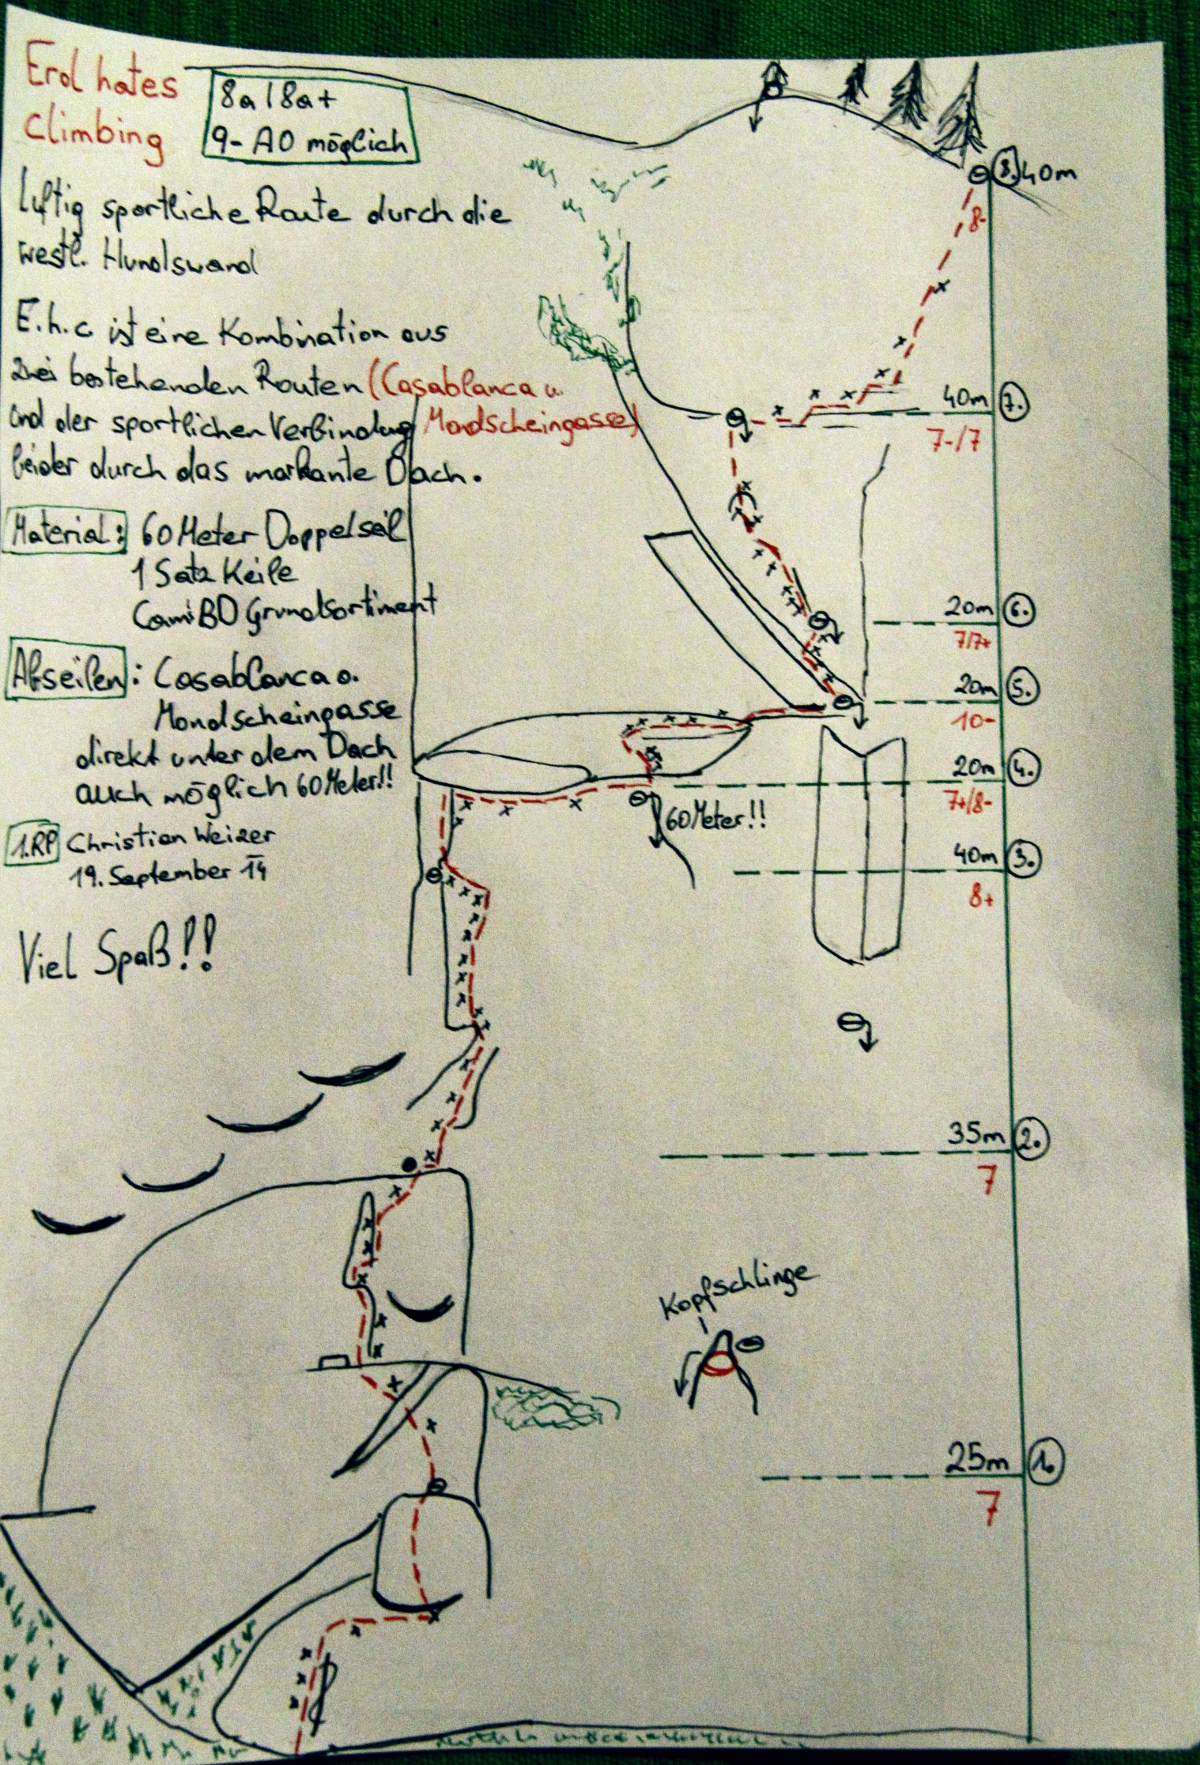 Erol hates
Climbing
8a/8a+
9- A0 möglich
luftig sportliche Route durch die
westl. Hundswand
E.h.c ist eine Kombination aus
zwei bestehenden Routen (Casablanca u.
und der sportlichen Verbindung Mondscheingasse)
beider durch das markante Dach.
Material: 60 Meter Doppelseil
1 Satz Keile
Cam: BD Grundsortiment
Abseilen: Casablanca o.
Mondscheingasse
direkt unter dem Dach
auch möglich 60 Meter!!
1.RP Christian Weizer
19. September 14
Viel Spaß!!
8. 40m
8-
40m 7.
7-/7
20m 6.
7/7+
20m 5.
10-
20m 4.
7+/8-
60 Meter!!
40m 3.
8+
35m 2.
7
Kopfschlinge
25m 1.
7